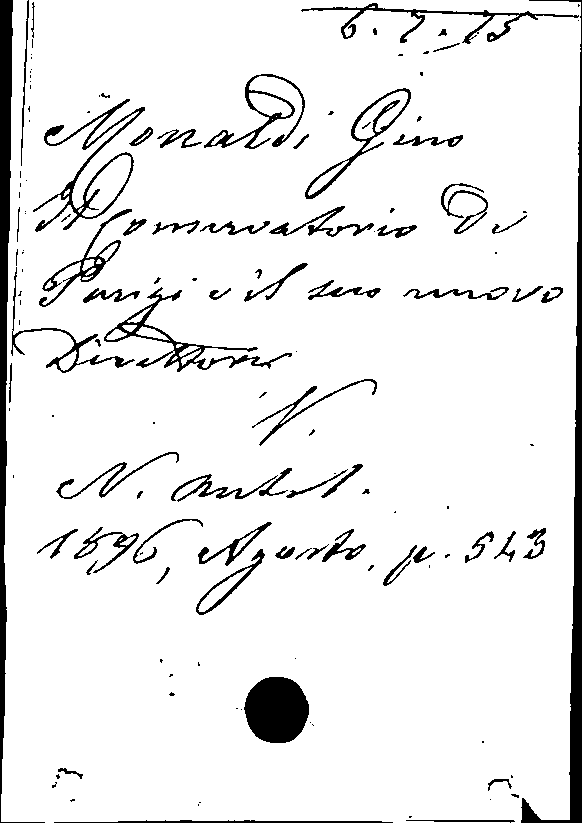 6. 7. 15
Monaldi Gino
Il Conservatorio di
Parigi e il suo nuovo
Direttore
V.
N. Antol.
1896, Agosto, p. 543